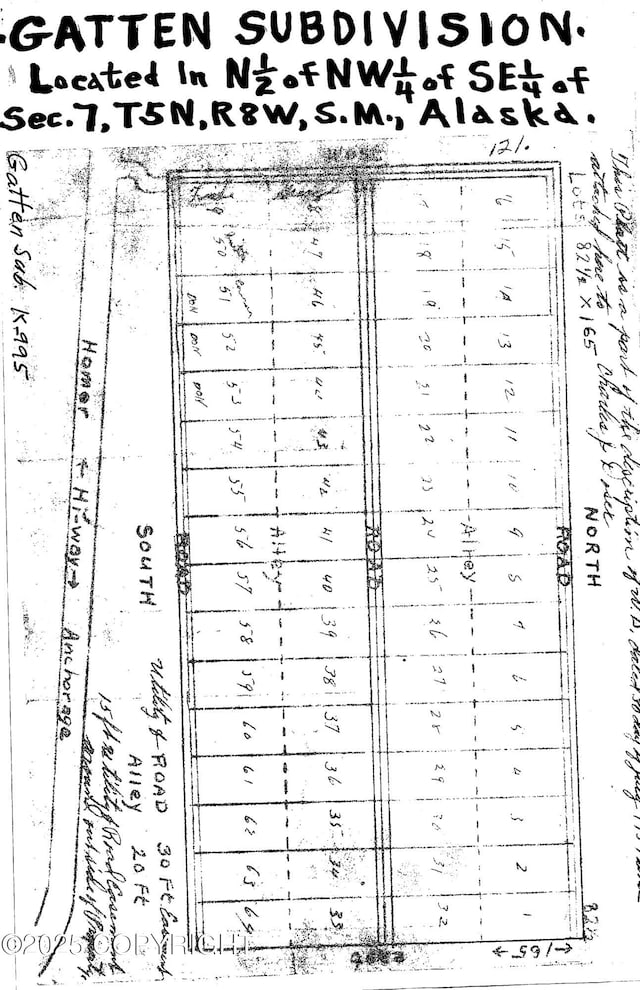 GATTEN SUBDIVISION.
Located In N½ of NW¼ of SE¼ of
Sec. 7, T5N, R8W, S.M., Alaska.
121.
WEST
Gatten Sub. K-995
Homer ← Hi-way → Anchorage
SOUTH
Utility & ROAD 30 Ft Easement
Alley 20 Ft
15 ft utility & Road Easement
around outside of Property
ROAD
Alley
ROAD
Alley
ROAD
NORTH
Lots 82½ X 165
This Platt is a part of the description of
attached here to
Charles
49 50 51 52 53 54 55 56 57 58 59 60 61 62 63 64
DON DON DON
48 47 46 45 44 43 42 41 40 39 38 37 36 35 34 33
17 18 19 20 21 22 23 24 25 26 27 28 29 30 31 32
16 15 14 13 12 11 10 9 8 7 6 5 4 3 2 1
82½
←165→
EAST
©2025 COPYRIGHT